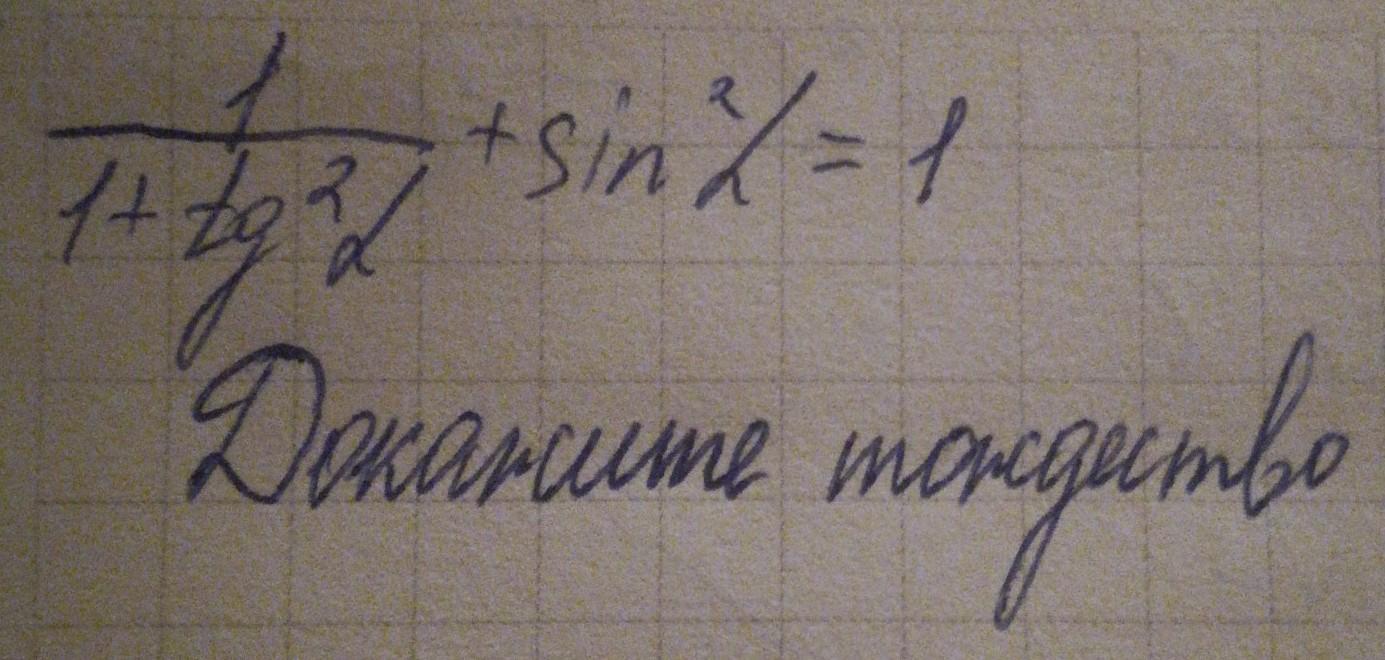 1/(1 + tg²α) + sin²α = 1
Докажите тождество